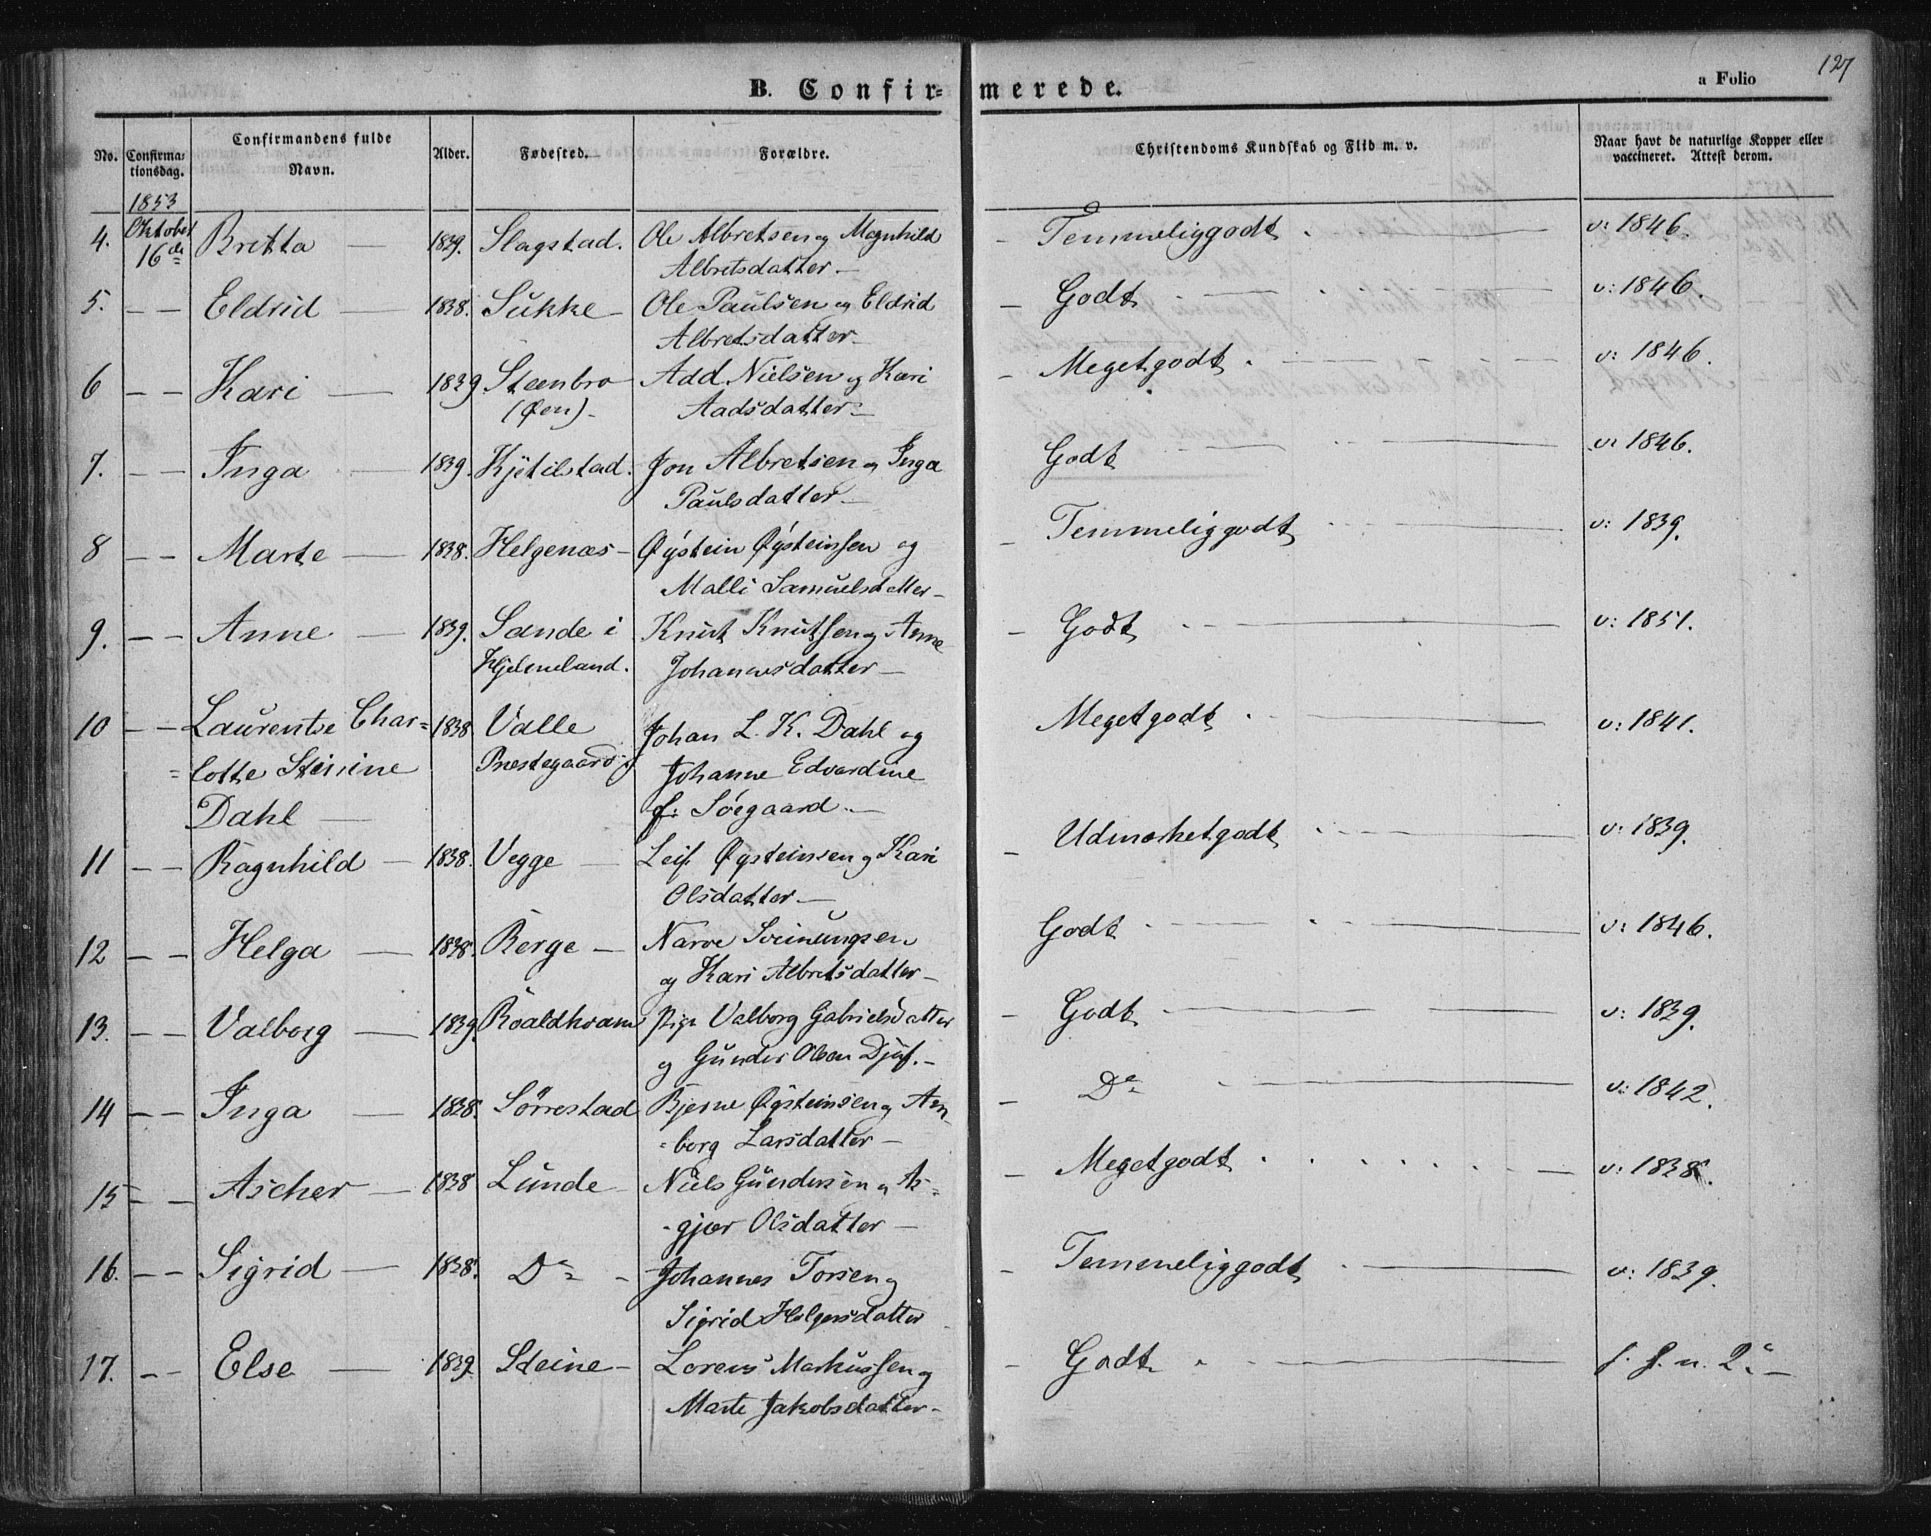 B. Confir=merede.
a Folio 127
No. Confirmationsdag. Confirmandens fulde Navn. Alder. Fødested. Forældre. Christendoms Kundskab og Flid m. v. Naar havt de naturlige Kopper eller vaccineret. Attest derom.
1853
4. Oktober 16de Britta — 1839. Slagstad. Ole Albretsen og Magnhild Temmeliggodt v: 1846.
Albretsdatter —
5. — — Eldrid — 1838. Sukke — Ole Paulsen og Eldrid — Godt v: 1846.
Albretsdatter —
6 — — Kari — 1839 Steenbro Add Nielsen og Kari — Megetgodt v: 1846.
(Øen) — Aadsdatter —
7. — — Inga 1839. Kjetilstad. Jon Albretsen og Inga Godt v: 1846.
Paulsdatter —
8 — — Marte — 1838. Helgenæs — Øystein Øysteinsen og — Temmeliggodt v: 1839.
Malli Samuelsdatter —
9. — — Anne — 1839. Sande i Knut Knutsen og Anne — Godt v: 1851.
Hjelmeland. Johannesdatter —
10 — — Laurentse Char= 1838 Valle Johan L. K. Dahl og Megetgodt v: 1841.
=lotte Stinine Prestegaard Johanne Edvardine
Dahl — f: Söegaard. —
11 — — Ragnhild — 1838. Vegge — Leif Øysteinsen og Kari — Udmærketgodt v: 1839.
Olsdatter —
12 — — Helga — 1838. Berge — Narve Sveinungsen Godt v: 1846.
og Kari Albretsdatter —
13. — — Valborg — 1839. Roaldkvam Pige Valborg Gabrielsdatter — Godt v: 1839.
og Gunder Olsen Djuf. —
14 — — Inga — 1838. Sörrestad Bjerne Øysteinsen og An — Do v: 1842.
=borg Larsdatter —
15 — — Ascher — 1838 Lunde Niels Gundersen og As= — Megetgodt v: 1838.
-gjær Olsdatter —
16. — — Sigrid — 1838. Do — Johannes Torsen og — Temmeliggodt v: 1839.
Sigrid Helgesdatter
17. — — Else — 1839 Steine — Lorens Markussen og — Godt f. S. n. 2. —
Marte Jakobsdatter —